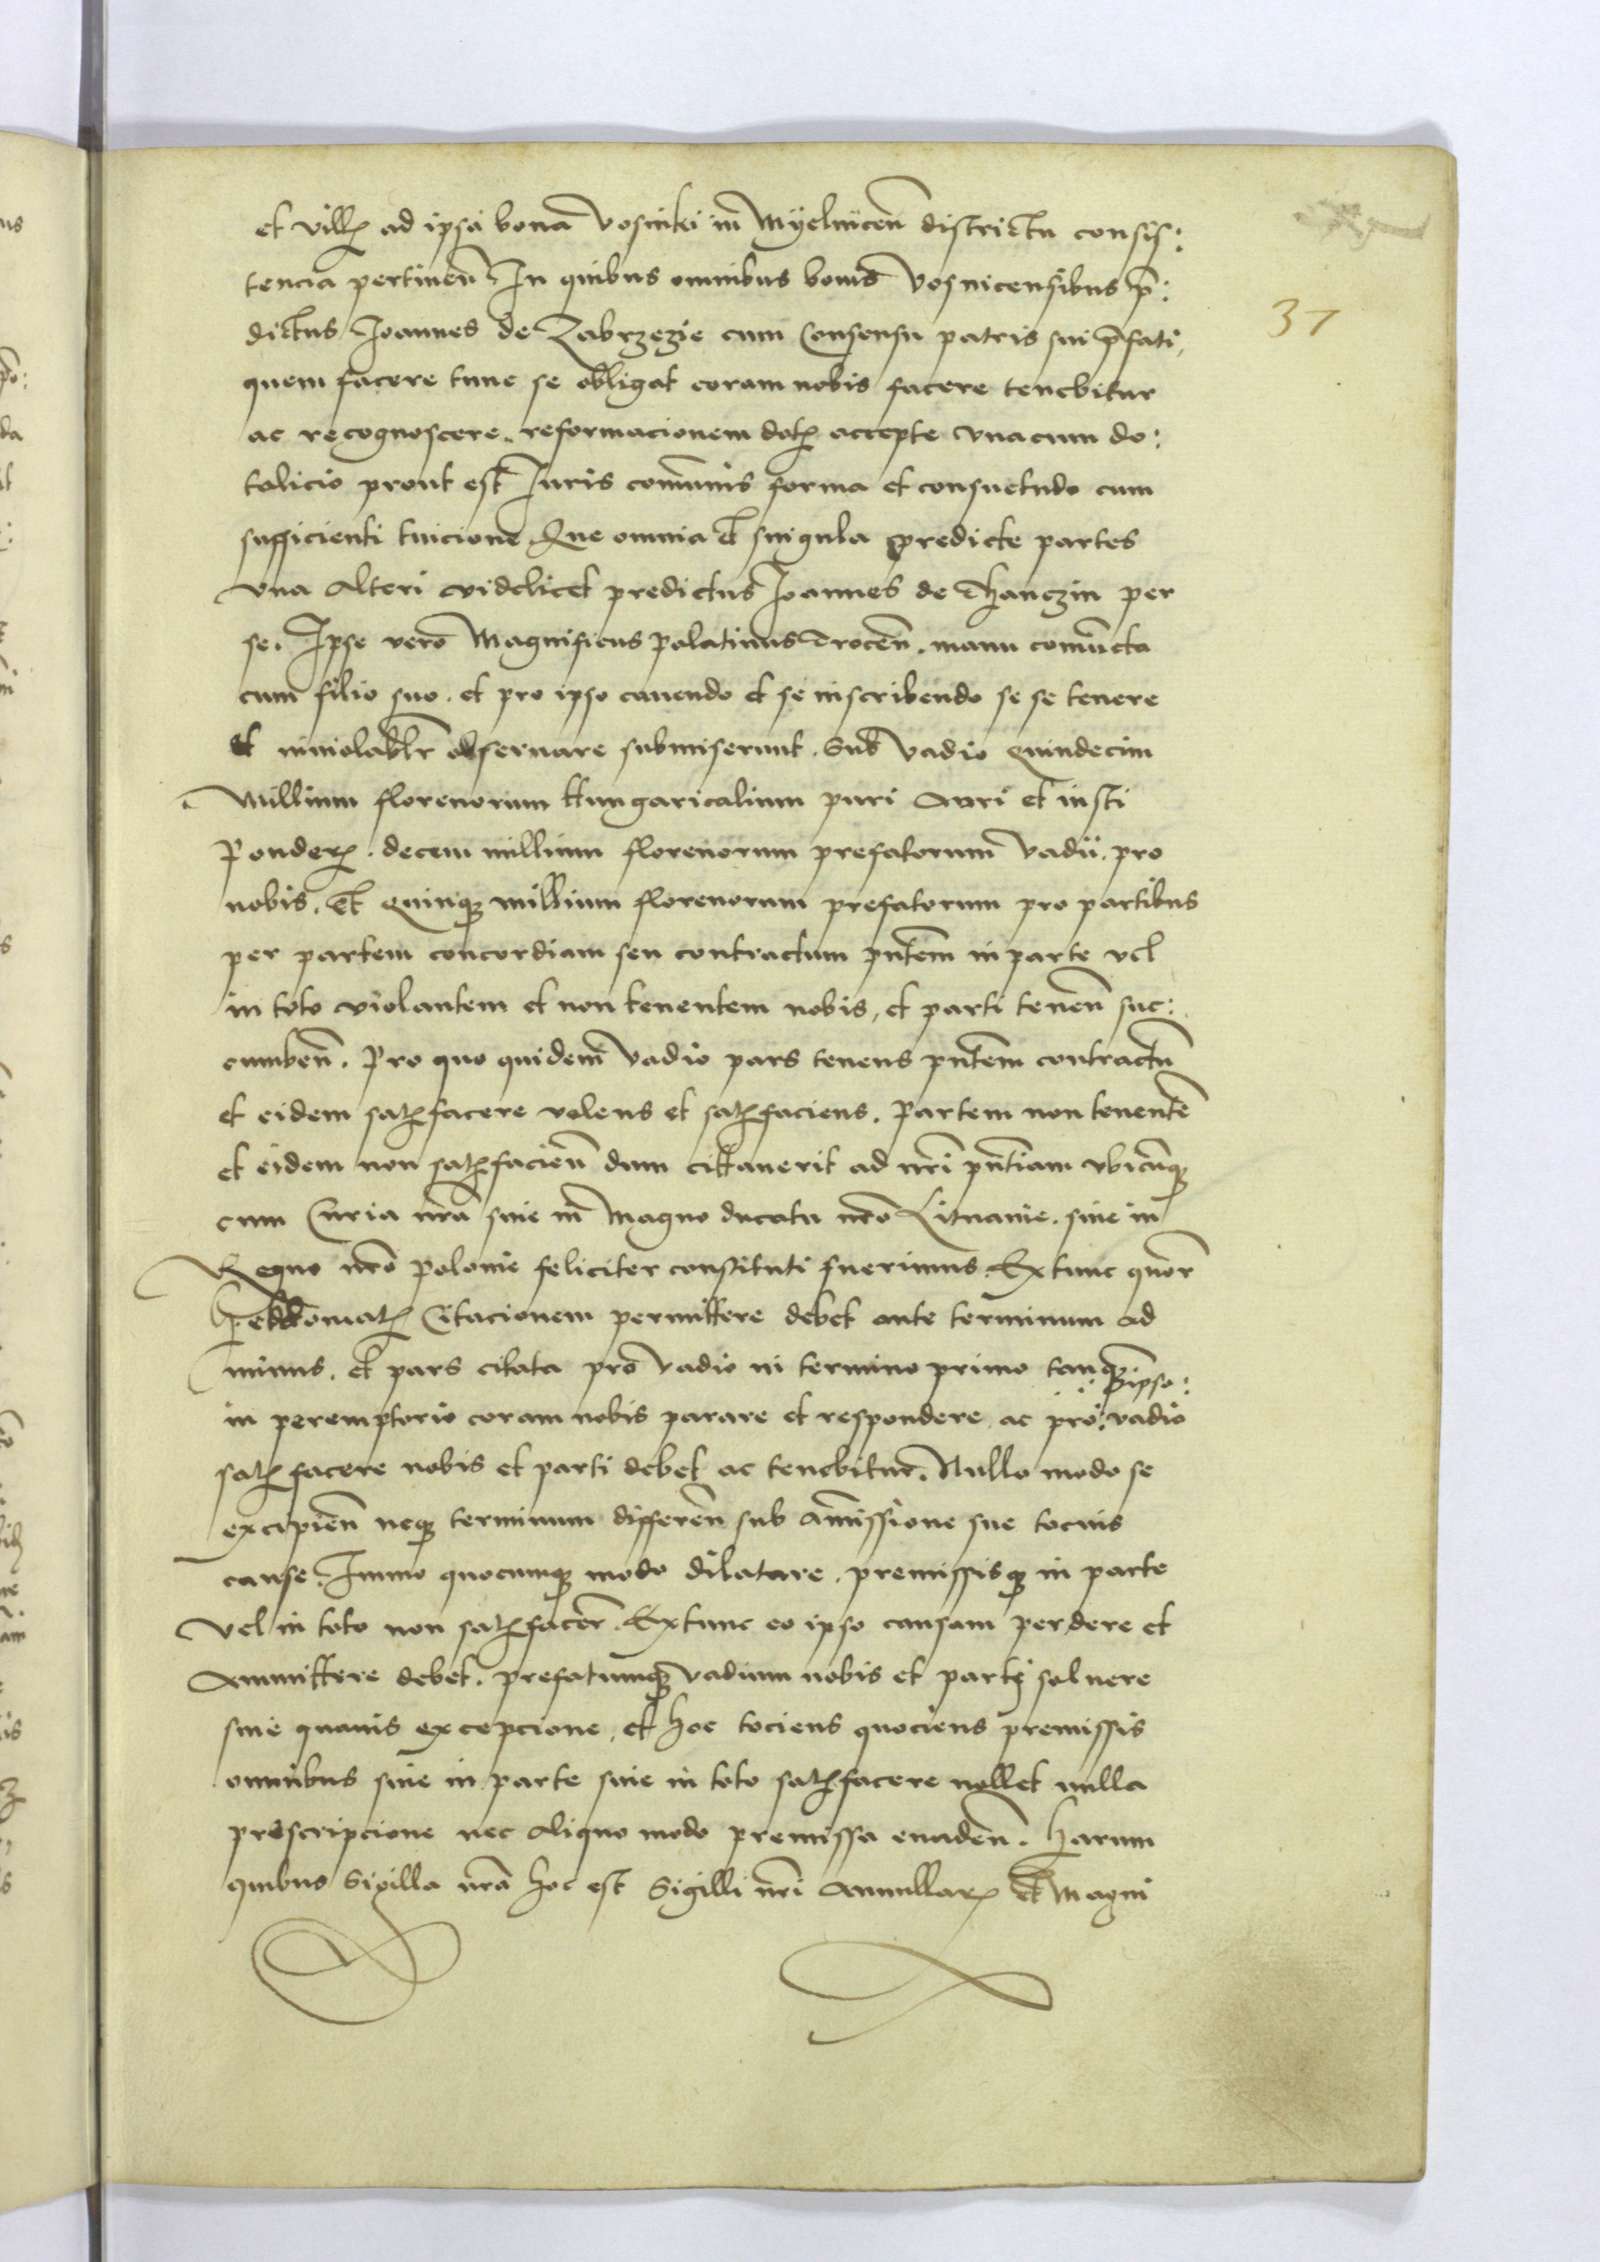 et vill[is] ad ipsa bona Vosniki in Myelnicen̄ districtu consis:
tencia pertinen̄ In quibus omnibus bonis Vosnicensibus p̄:
dictus Joannes de Zabrzezie cum Consensu patris sui p̄fati,
quem facere tunc se obligat coram nobis facere tenebitur
ac recognoscere. reformacionem dotꝭ accepte vnacum do:
talicio prout est Iuris comunis forma et consuetudo cum
sufficienti tuicione Que omnia et singula predicte partes
vna alteri videlicet predictus Joannes de Thanczin per
se. Ipse vero Magnificus palatinus Trocen̄. manu coniuncta
cum filio suo. et pro ipso cauendo et se inscribendo se se tenere
et inuiolablr̄ obseruare submiserunt. Sub vadio quindecim
Millium florenorum hungaricalium puri auri et iusti
Ponderꝭ. decem millium florenorum prefatorum vadii. pro
nobis. Et quinqꝫ millium florenorum prefatorum pro partibus
per partem concordiam seu contractum pn̄tem in parte vel
in toto violantem et non tenentem nobis, et parti tenen̄ suc:
cumben̄. Pro quo quidem vadio pars tenens pn̄tem contractū
et eidem satꝭfacere volens et satꝭfaciens. Partem non tenentē
et eidem non satꝭfacien̄ dum cittauerit ad nr̄i pn̄tiam vbicūqꝫ
cum Curia nr̄a siue in Magno ducatu nr̄o Lituanie. siue in
Regno nr̄o polonie feliciter constituti fuerimus. Extunc quor̄
hebdomatꝭ Citacionem permittere debet ante terminum ad
minus. et pars citata pro vadio in termino primo tanqꝫ
in peremptorio coram nobis parare et respondere ac pro: ipso: vadio
satꝭfacere nobis et parti debet ac tenebitur. Nullo modo se
excipien̄ neqꝫ terminum differen̄ sub amissione sue tocius
cause. Immo quocumqꝫ modo dilatare. premissisqꝫ in parte
vel in toto non satꝭfacer̄. Extunc eo ipso causam perdere et
ammittere debet. prefatumqꝫ vadium nobis et parti soluere
sine quauis excepcione, et hoc tociens quociens premissis
omnibus siue in parte siue in toto satꝭfacere nollet nulla
prescripcione nec aliquo modo premissa euaden̄. Harum
quibus Sigilla nr̄a hoc est Sigilli nr̄i Annullarꝭ et Magni
37